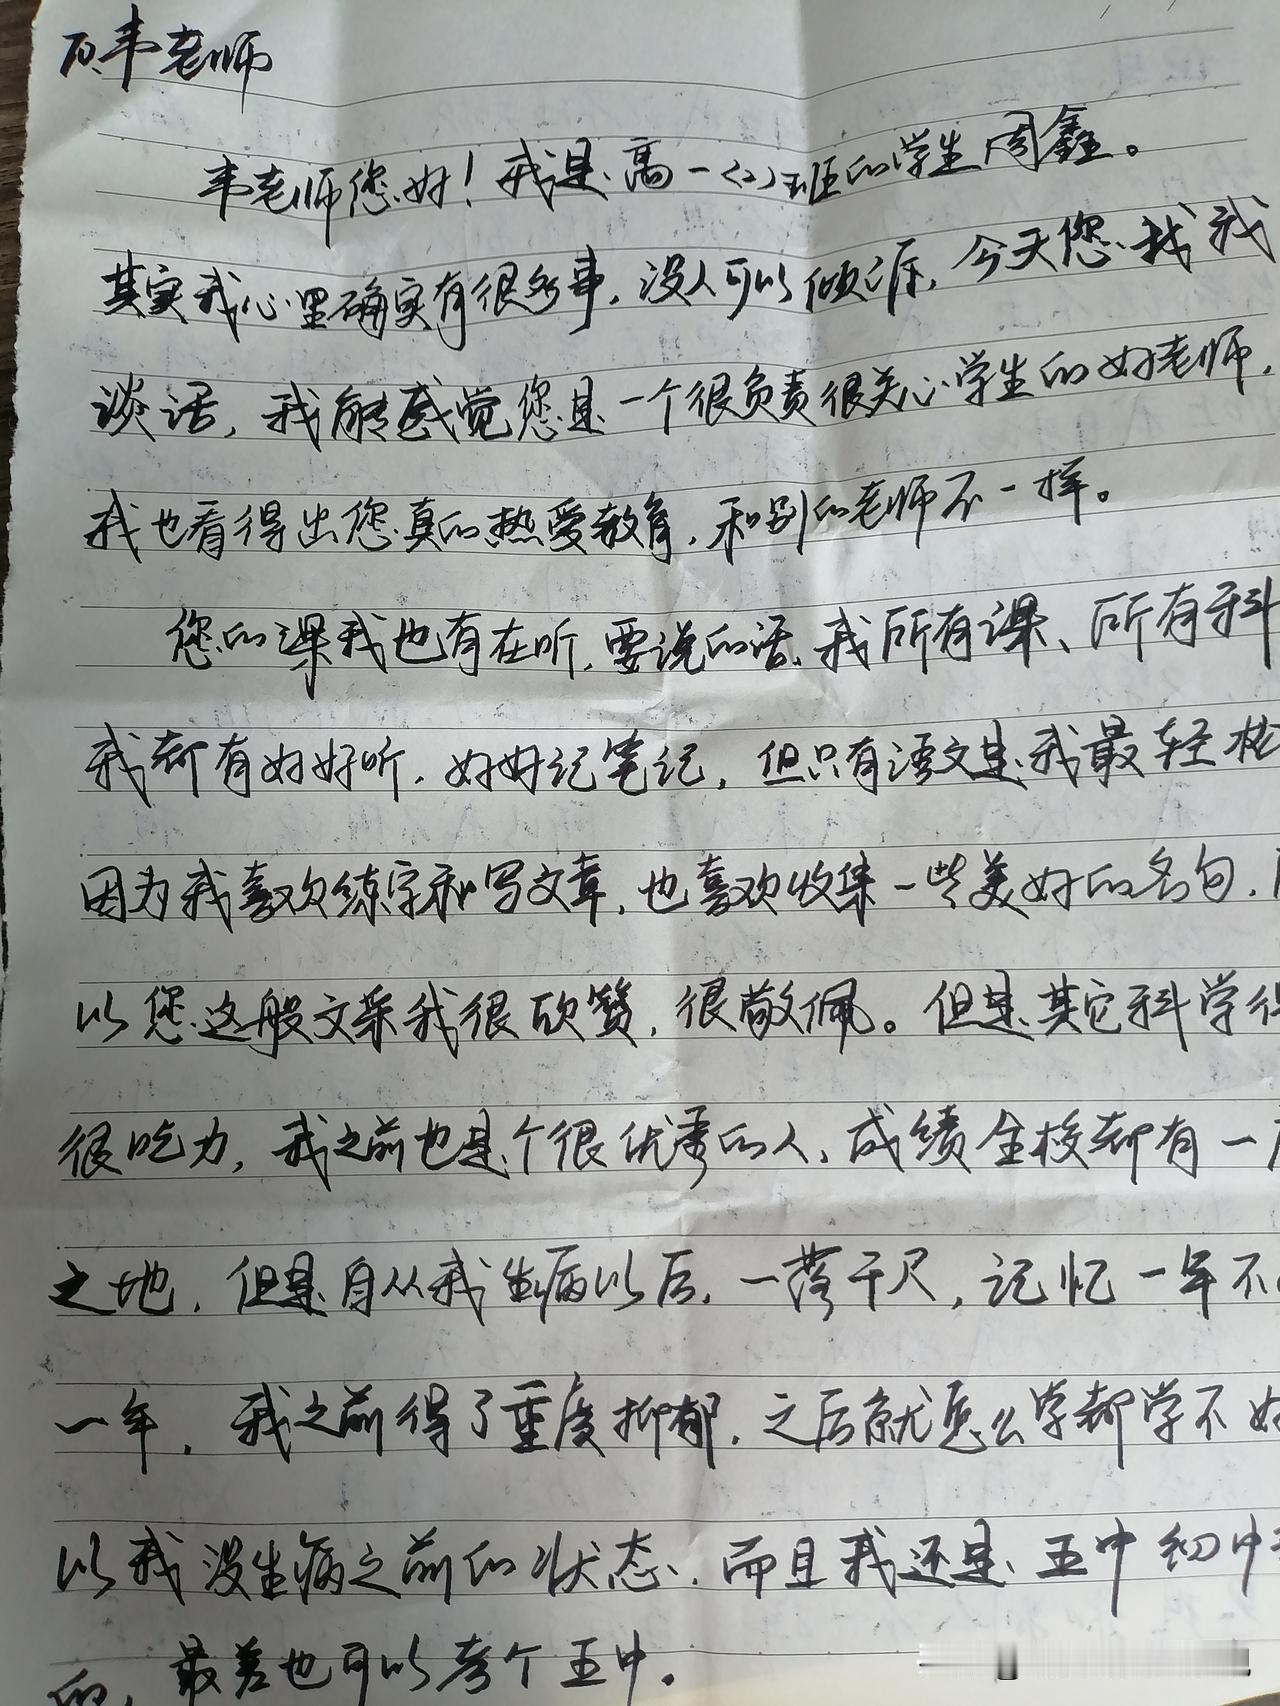 韦老师
韦老师您好！我是高一<2>班的学生周鑫。
其实我心里确实有很多事，没人可以倾诉，今天您找我
谈话，我能感觉您是一个很负责很关心学生的好老师，
我也看得出您真的热爱教育，和别的老师不一样。
您的课我也有在听，要说的话，我所有课、所有科
我都有好好听，好好记笔记，但只有语文是我最轻松
因为我喜欢练字和写文章，也喜欢收集一些美好的名句，
以您这般文采我很欣赞，很敬佩。但是其它科学得
很吃力，我之前也是个很优秀的人，成绩全校都有一
之地，但是自从我生病以后，一落千尺，记忆一年不
一年，我之前得了重度抑郁，之后就怎么学都学不好
以我没生病之前的状态，而且我还是五中初中
的，最差也可以考个五中。